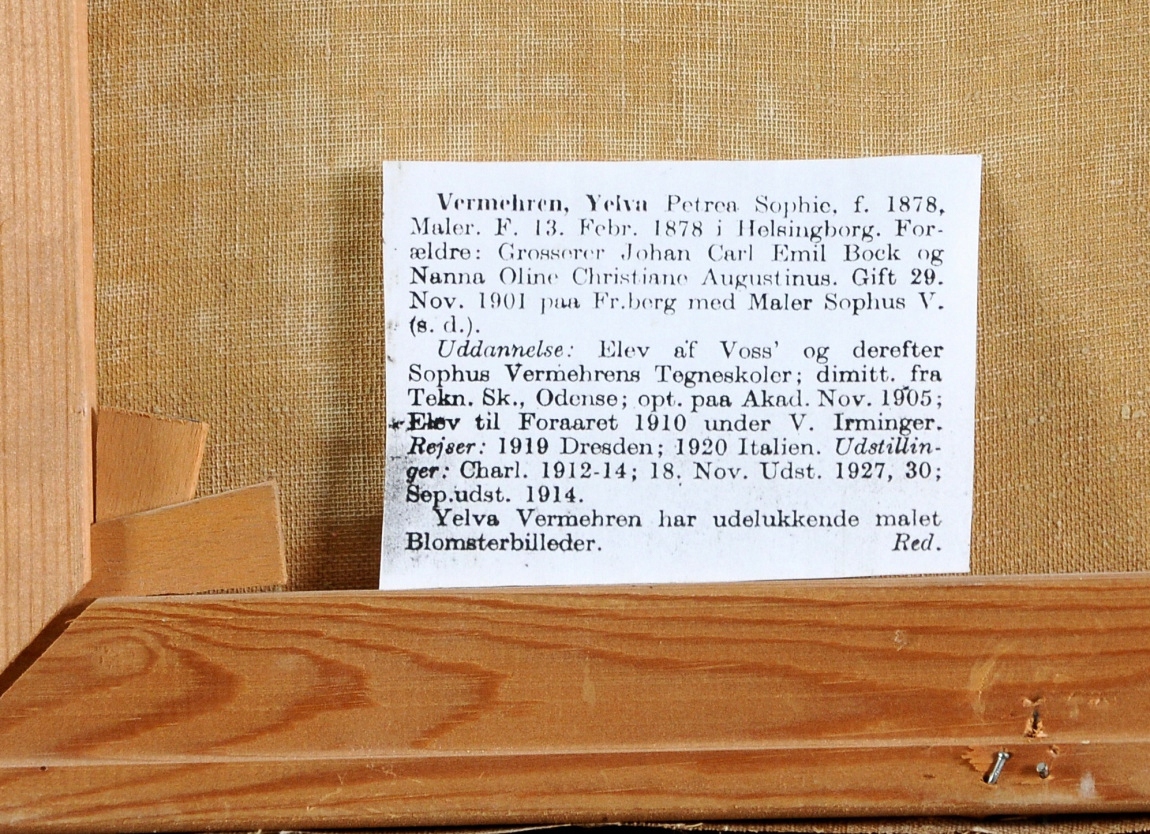 Vermehren, Yelva Petrea Sophie, f. 1878,
Maler. F. 13. Febr. 1878 i Helsingborg. For-
ældre: Grosserer Johan Carl Emil Bock og
Nanna Oline Christiane Augustinus. Gift 29.
Nov. 1901 paa Fr.berg med Maler Sophus V.
(s. d.).
Uddannelse: Elev af Voss' og derefter
Sophus Vermehrens Tegneskoler; dimitt. fra
Tekn. Sk., Odense; opt. paa Akad. Nov. 1905;
Elev til Foraaret 1910 under V. Irminger.
Rejser: 1919 Dresden; 1920 Italien. Udstillin-
ger: Charl. 1912-14; 18. Nov. Udst. 1927, 30;
Sep.udst. 1914.
Yelva Vermehren har udelukkende malet
Blomsterbilleder. Red.